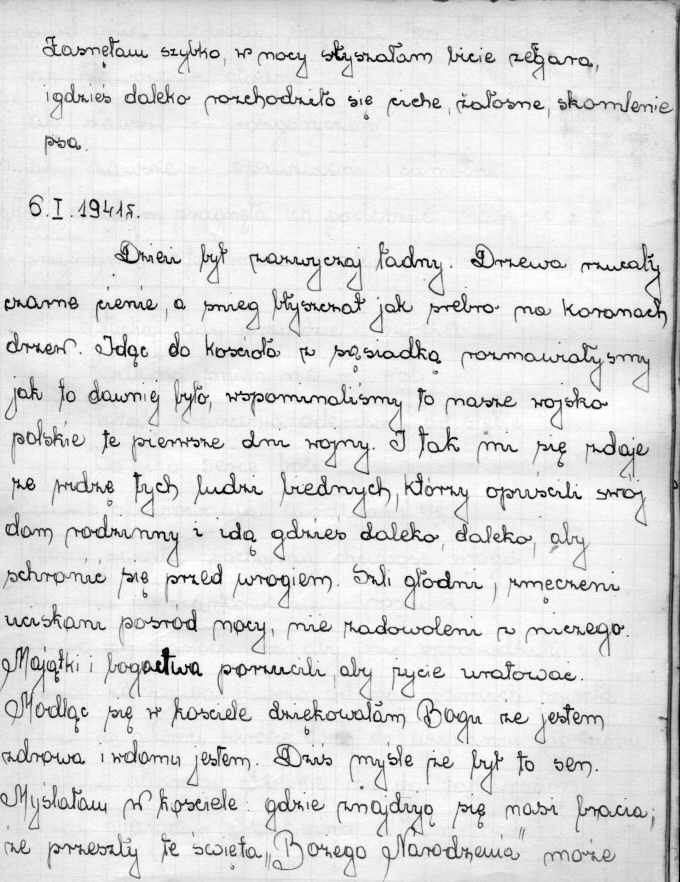 Zasnęłam szybko, w nocy słyszałam bicie zegara,
i gdzieś daleko rozchodziło się ciche, żałosne, skomlenie
psa.
6.I.1941r.
Dzień był zazwyczaj ładny. Drzewa rzucały
czarne cienie, a śnieg błyszczał jak srebro na koronach
drzew. Idąc do kościoła z sąsiadką rozmawiałyśmy
jak to dawniej było, wspominaliśmy to nasze wojsko
polskie te pierwsze dni wojny. I tak mi się zdaje
że widzę tych ludzi biednych, którzy opuscili swój
dom rodzinny i idą gdzieś daleko, daleko, aby
schronic się przed wrogiem. Szli głodni, zmęczeni
uciskani pośród nocy, nie zadowoleni z niczego.
Majątki i bogactwa porzucili, aby życie uratować.
Modląc się w kosciele dziękowałam Bogu ze jestem
zdrowa i w domu jestem. Dziś myśle ze był to sen.
Myslałam w kościele: gdzie znajdują się nasi bracia,
że przeszły te święta „Bożego Narodzenia” może